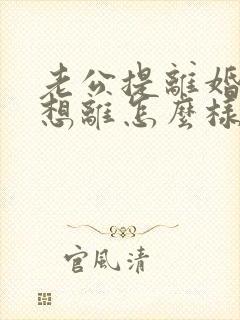 老公提離婚
想離怎麼樣
官風清